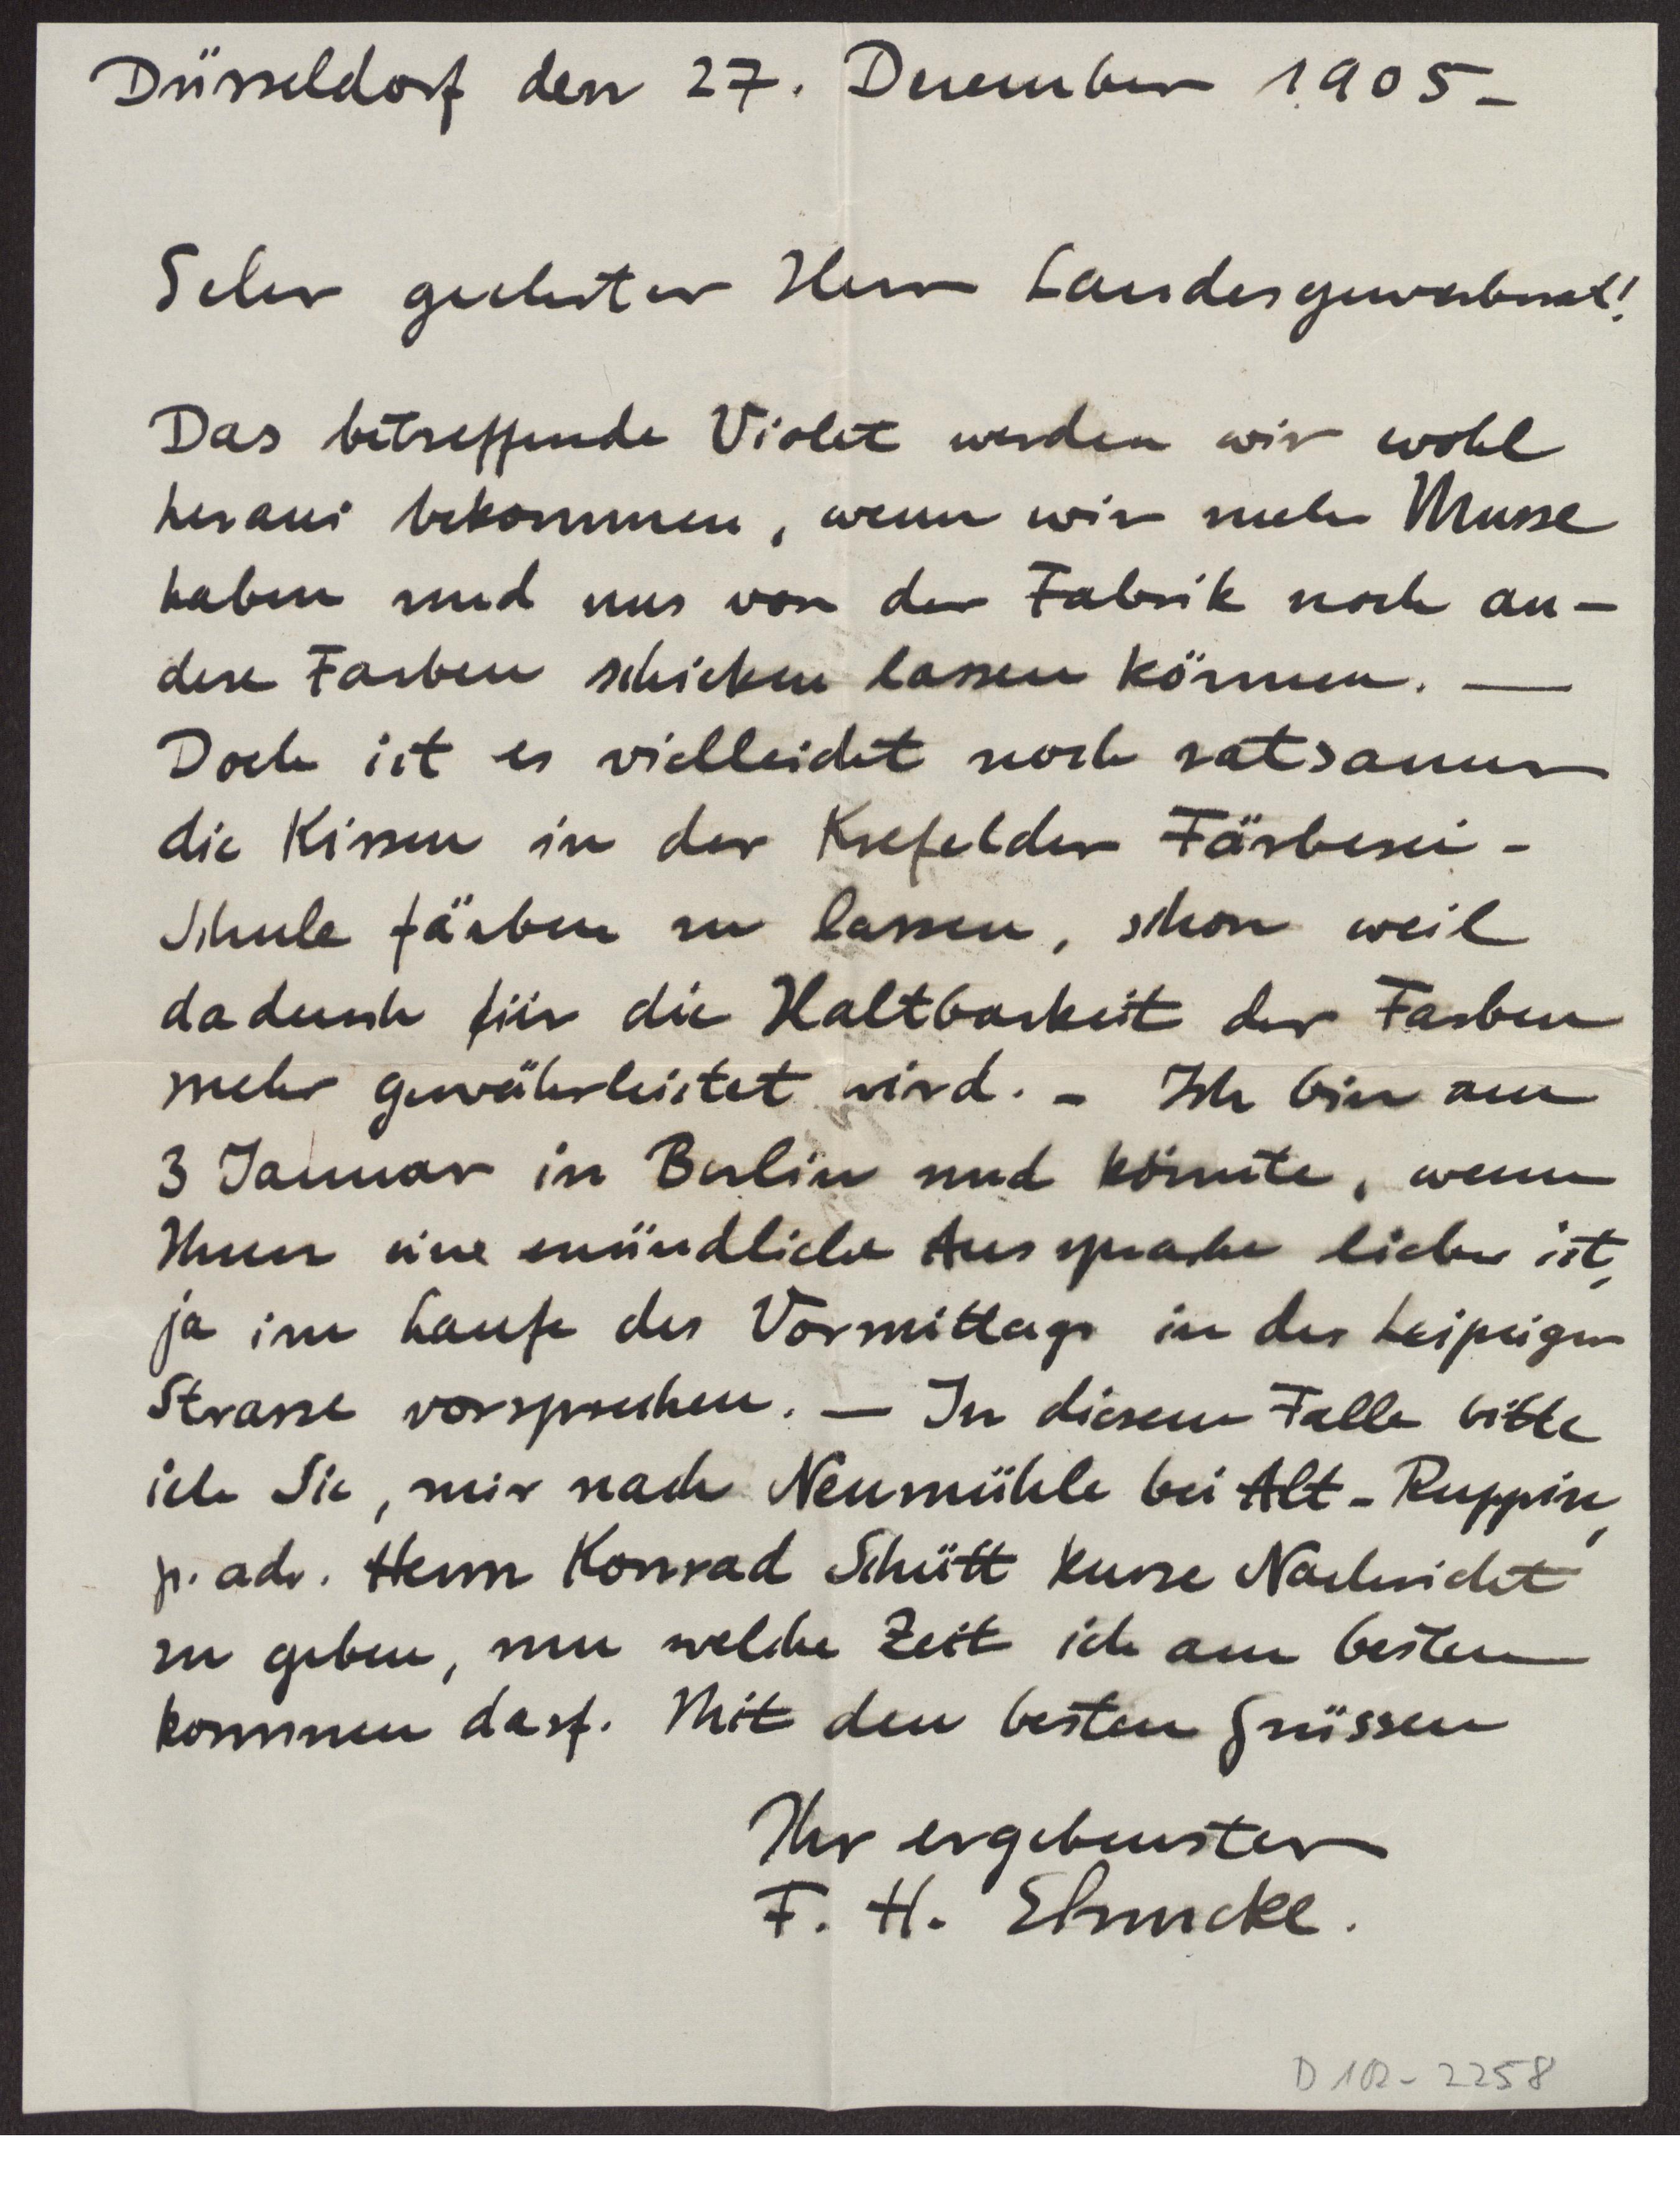 Düsseldorf den 27. Dezember 1905 –
Sehr geehrter Herr Landesgewerberat!
Das betreffende Violet werden wir wohl
heraus bekommen, wenn wir mehr Musse
haben und uns von der Fabrik noch an-
dere Farben schicken lassen können. —
Doch ist es vielleicht noch ratsamer
die Kissen in der Krefelder Färberei-
Schule färben zu lassen, schon weil
dadurch für die Haltbarkeit der Farben
mehr gewährleistet wird. – Ich bin am
3 Januar in Berlin und könnte, wenn
Ihnen eine mündliche Aussprache lieber ist,
ja im Laufe des Vormittags in der Leipziger
Strasse vorsprechen. — In diesem Falle bitte
ich Sie, mir nach Neumühle bei Alt-Ruppin,
p. adr. Herrn Konrad Schütt kurze Nachricht
zu geben, um welche Zeit ich am besten
kommen darf. Mit den besten Grüssen
Ihr ergebenster
F. H. Ehmcke.
D 102-2258